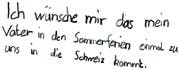 Ich wünsche mir das mein
Vater in den Sommerferien einmal zu
uns in die Schweiz kommt.